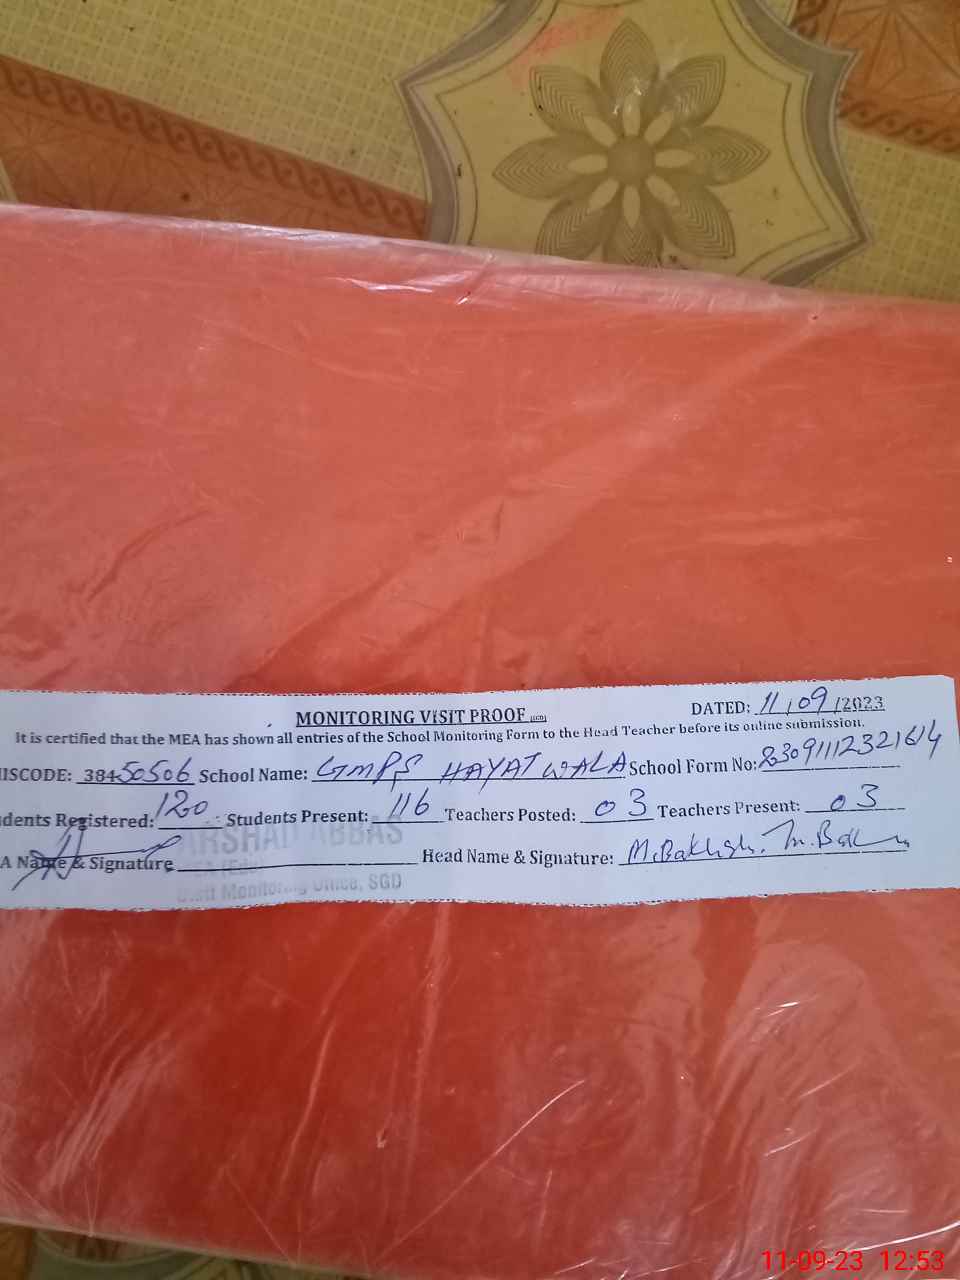 MONITORING VISIT PROOF
DATED: 11/09/2023
It is certified that the MEA has shown all entries of the School Monitoring Form to the Head Teacher before its online submission.
ISCODE: 38450506 School Name: GMPS HAYAT WALA School Form No:
dents Registered: 120 Students Present: 116 Teachers Posted: 03 Teachers Present: 03
ARSHAD ABBAS
A Name & Signature Head Name & Signature: M.Bakhsh.
Monitoring Office, SGD
11-09-23 12:53